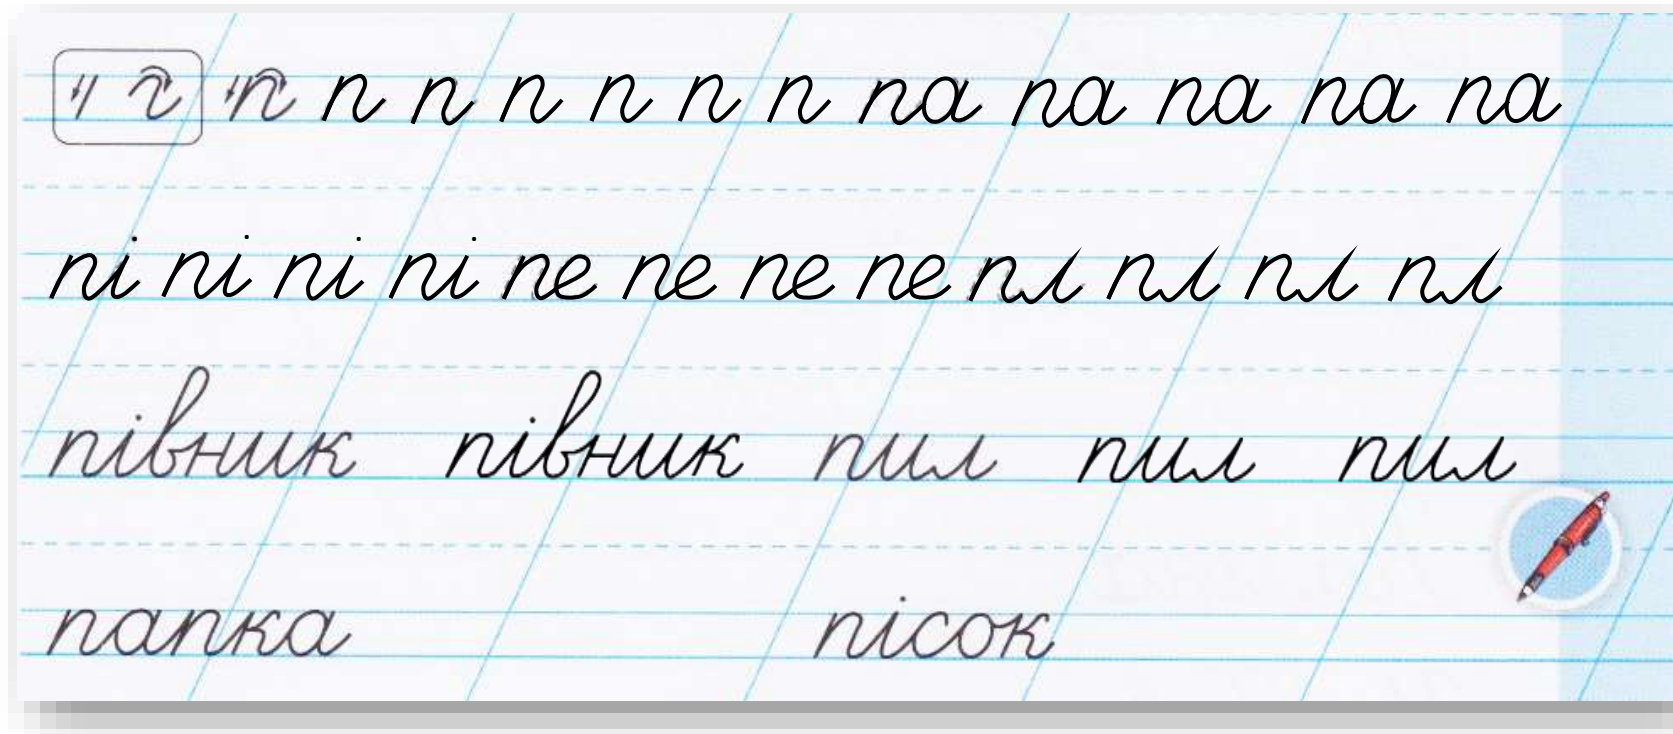 п п п п п п п па па па па па
пі пі пі пі пе пе пе пе пл пл пл пл
півник півник пил пил пил
папка пісок